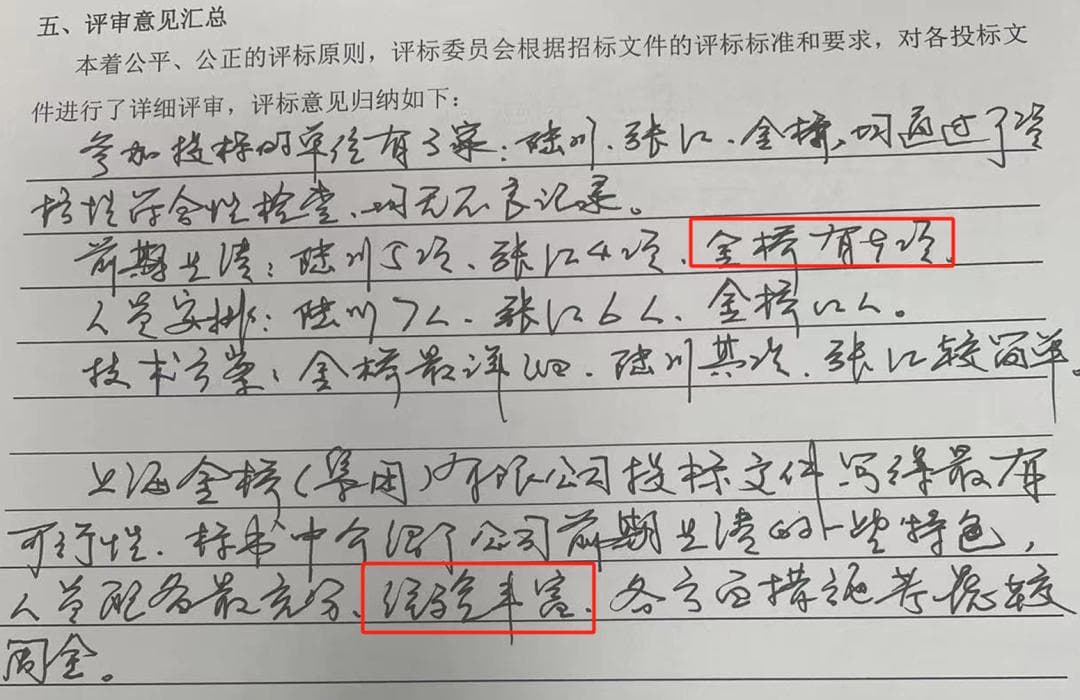 五、评审意见汇总
本着公平、公正的评标原则，评标委员会根据招标文件的评标标准和要求，对各投标文
件进行了详细评审，评标意见归纳如下：
参加投标的单位有3家：陆川、张江、金桥，均通过了资
格性符合性检查、均无不良记录。
前期业绩：陆川5项、张江4项、金桥有9项、
人员安排：陆川7人、张江6人、金桥12人。
技术方案：金桥最详细、陆川其次、张江较简单。
上海金桥（集团）有限公司投标文件写得最有
可行性、标书中介绍了公司前期业绩的一些特色，
人员配备最充分、经验丰富、各方面措施考虑较
周全。